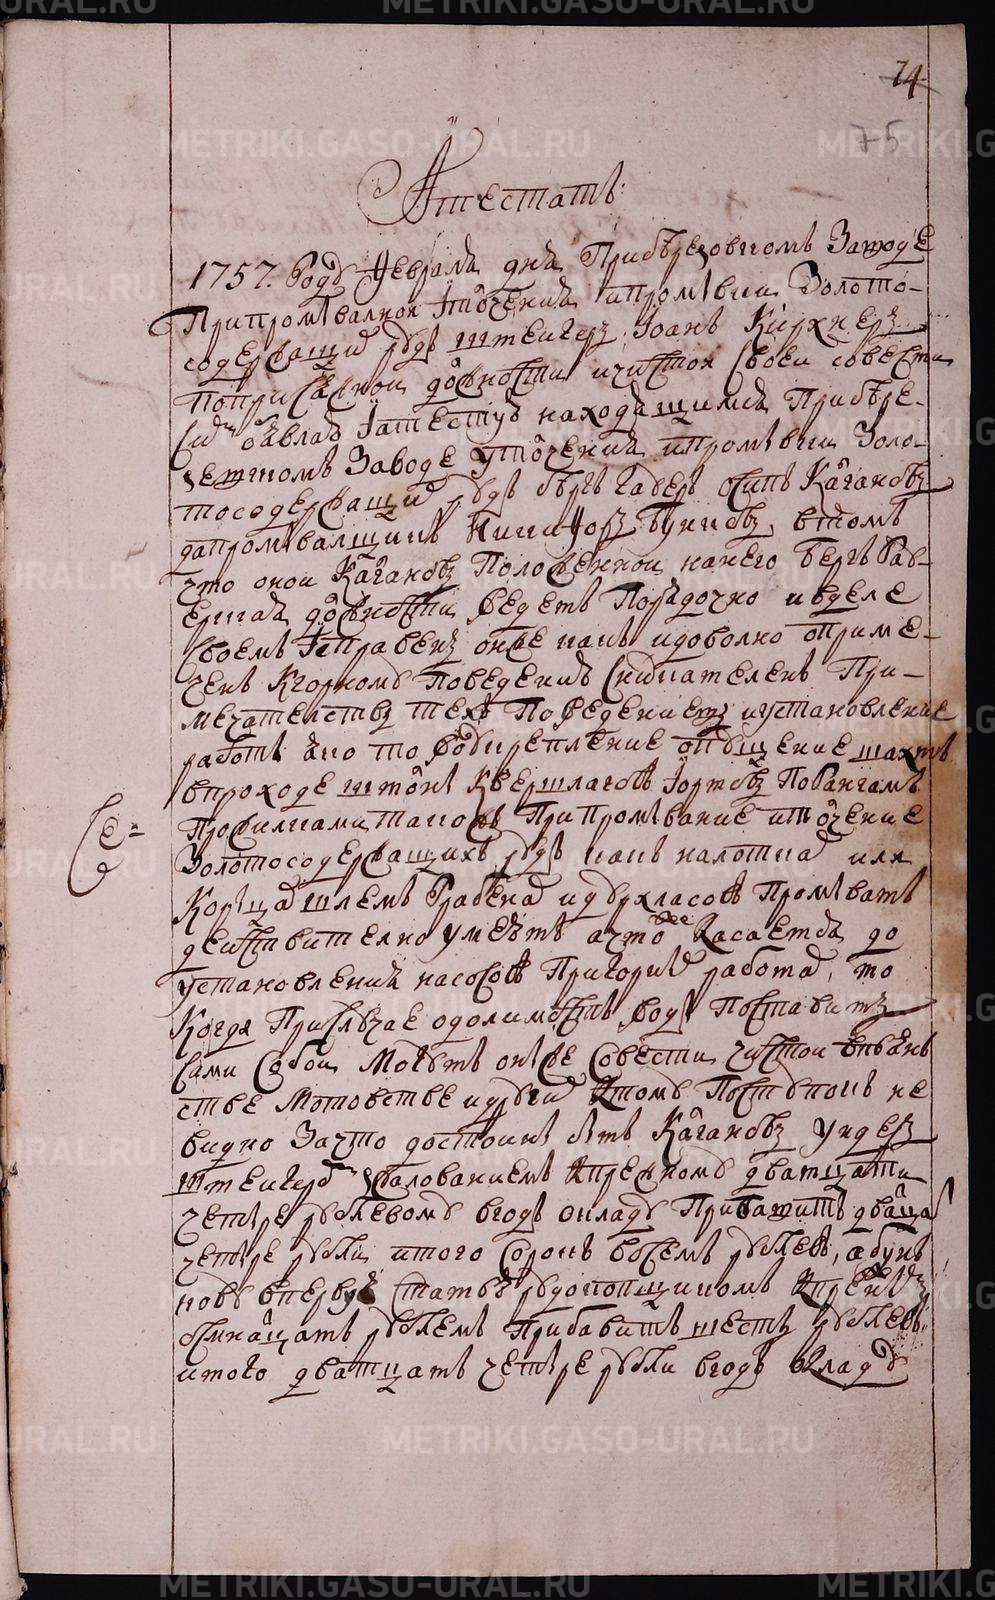 74
75
Аттестатъ
1757. Году февраля дня При березовском Заводе
При промывалной и толчении и промывки Золото-
содержащих руд штейгер Иоанъ Кирхнеръ
по присяжной должности и чистой своей совести
сим объявляю и атестую находящимся При бере-
зовском Заводе у толчения и промывки Золо-
тосодержащих рудъ бергъ гавер осипъ Качановъ
да промывалщикъ Никифоръ Бунковъ, в томъ
что оной Качановъ Положенною на него бергъ гав-
ерская должности ведетъ Порядочно и в деле
своемъ исправенъ он же какъ и доволно приме-
ченъ к горному поведению внимателенъ При-
мечателству техъ Поведениевъ и установление
работъ яко то в обкрепление опущение шахтъ
в проходе штолн квершлаговъ и ортовъ По гангамъ
Профилями такожъ При промывание и толчение
Золотосодержащихъ рудъ какъ на лотках или
Корыщах шлемъ грабенах и дурхласовъ Промывать
действително умеетъ а что же касаетца до
установления насосовъ При горных работах, то
когда При случае одолимость воды Поставитъ
сами собой можетъ он же Совести чистой в пьян-
стве мотовстве и других к тому Поступокъ не
видно За что достоинъ быть Качановъ ундеръ
штейгеромъ з жалованиемъ к прежному дватцати
четыре рублевому в годъ окладу Прибавить дватца
четыре рубли итого сорокъ восемъ рублевъ, а бун-
кову в первую статью рудокопщиком к прежнему
осмнатцать рублемъ Прибавить шесть рублевъ
итого дватцать четыре рубли в годъ окладу